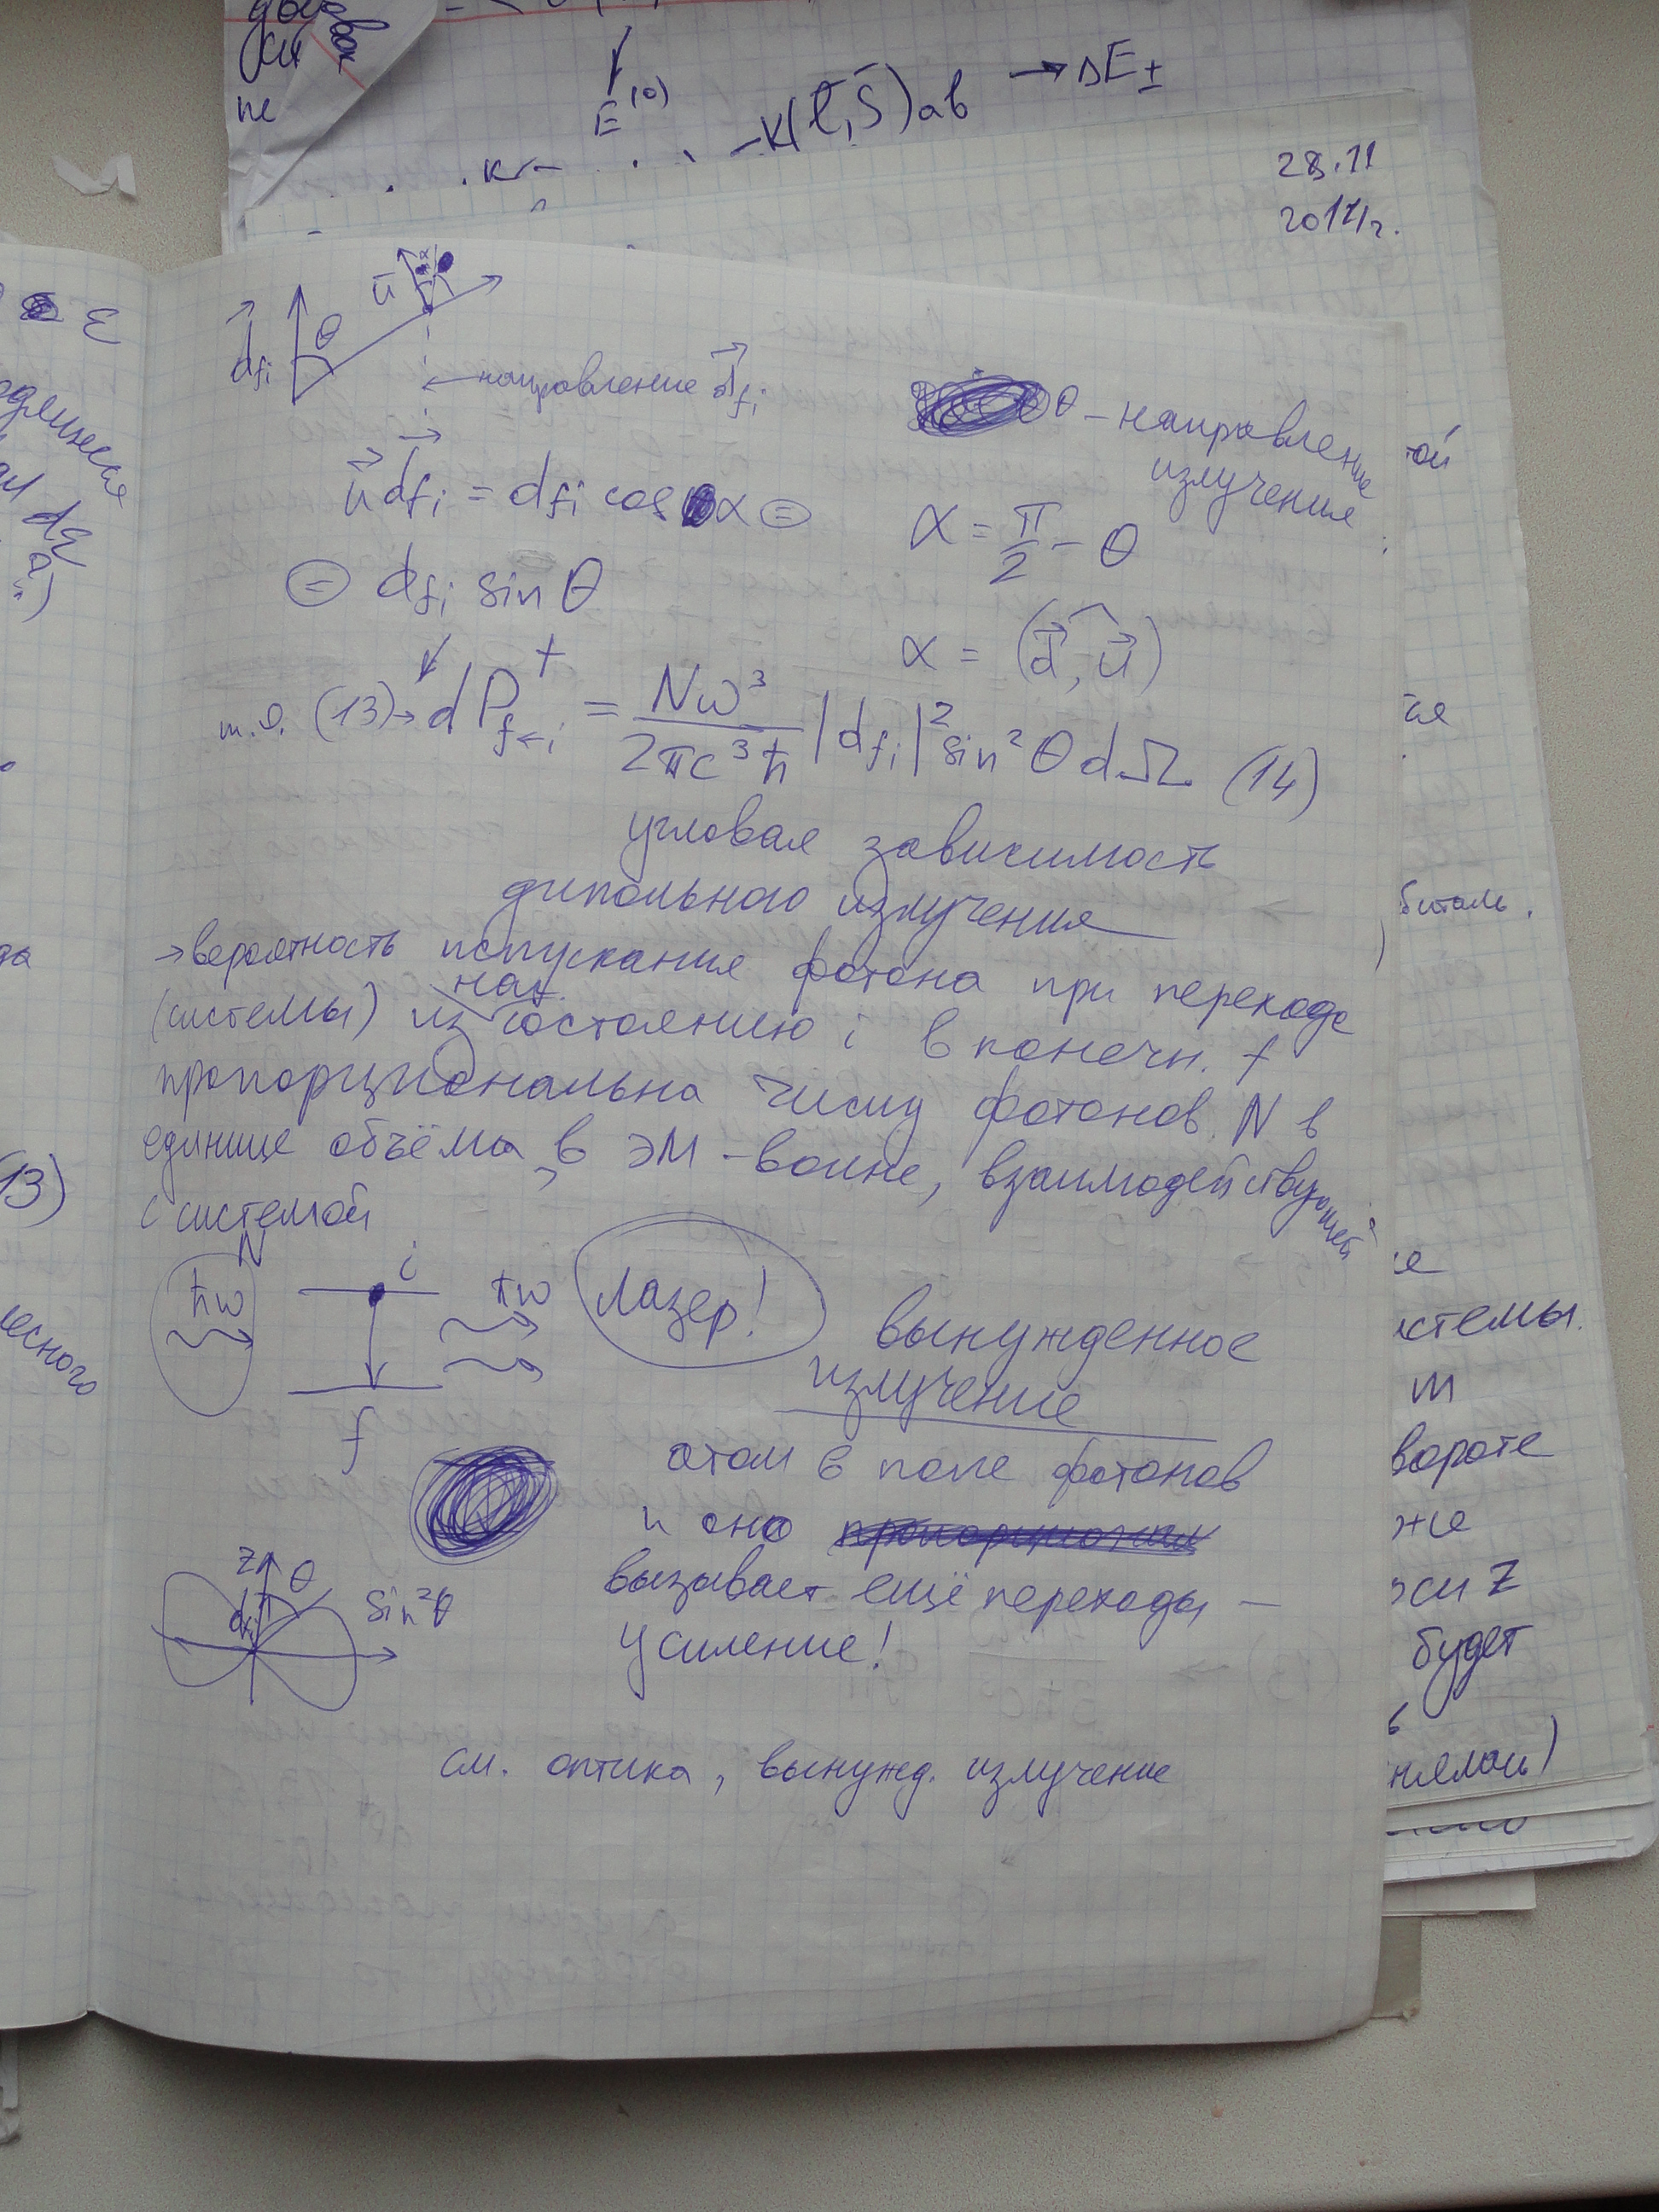 E⁽⁰⁾
-K(l⃗,S⃗)ab → ΔE±
28.11
2017г.
d⃗fi
θ
u⃗
α
← направление d⃗fi
θ – направление
излучения
u⃗ d⃗fi = dfi cos α ⊜
α = π/2 − θ
⊜ dfi sin θ
α = (d⃗,^u⃗)
т.о. (13)→ dP⁺f←i = Nω³/2πc³ħ |dfi|² sin²θ dΩ (14)
угловая зависимость
дипольного излучения
→ вероятность испускания фотона при переходе
(системы) из нач. состоянию i в конечн. f
пропорциональна числу фотонов N в
единице объёма, в ЭМ-волне, взаимодействующей
с системой
N
ħω
i
f
ħω
Лазер!
вынужденное
излучение
атом в поле фотонов
и оно
вызывает ещё переходы –
усиление!
z
θ
dfi
sin²θ
см. оптика, вынужд. излучение
ε
dq
(13)
лесного
той
биталь.
стемы.
m
вороте
же
оси z
будет